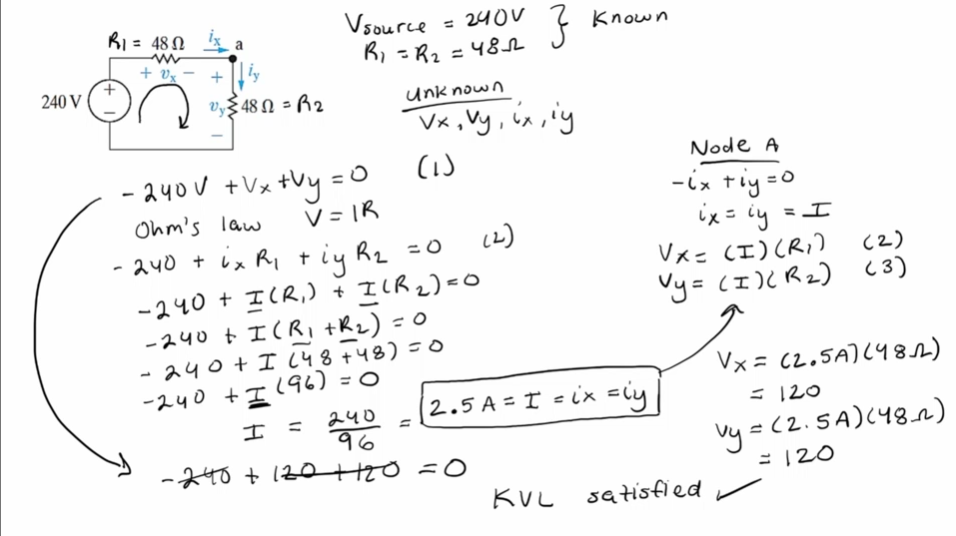 R1 = 48 Ω
ix
a
+ vx −
+
iy
240 V
+
−
vy
48 Ω = R2
−
Vsource = 240V
R1 = R2 = 48Ω
} Known
Unknown
Vx, Vy, ix, iy
-240V + Vx + Vy = 0 (1)
Ohm's law V = IR
-240 + ix R1 + iy R2 = 0 (2)
-240 + I(R1) + I(R2) = 0
-240 + I(R1 + R2) = 0
-240 + I(48+48) = 0
-240 + I(96) = 0
I = 240/96 = 2.5A = I = ix = iy
-240 + 120 + 120 = 0
KVL satisfied ✓
Node A
-ix + iy = 0
ix = iy = I
Vx = (I)(R1) (2)
Vy = (I)(R2) (3)
Vx = (2.5A)(48Ω)
= 120
Vy = (2.5A)(48Ω)
= 120